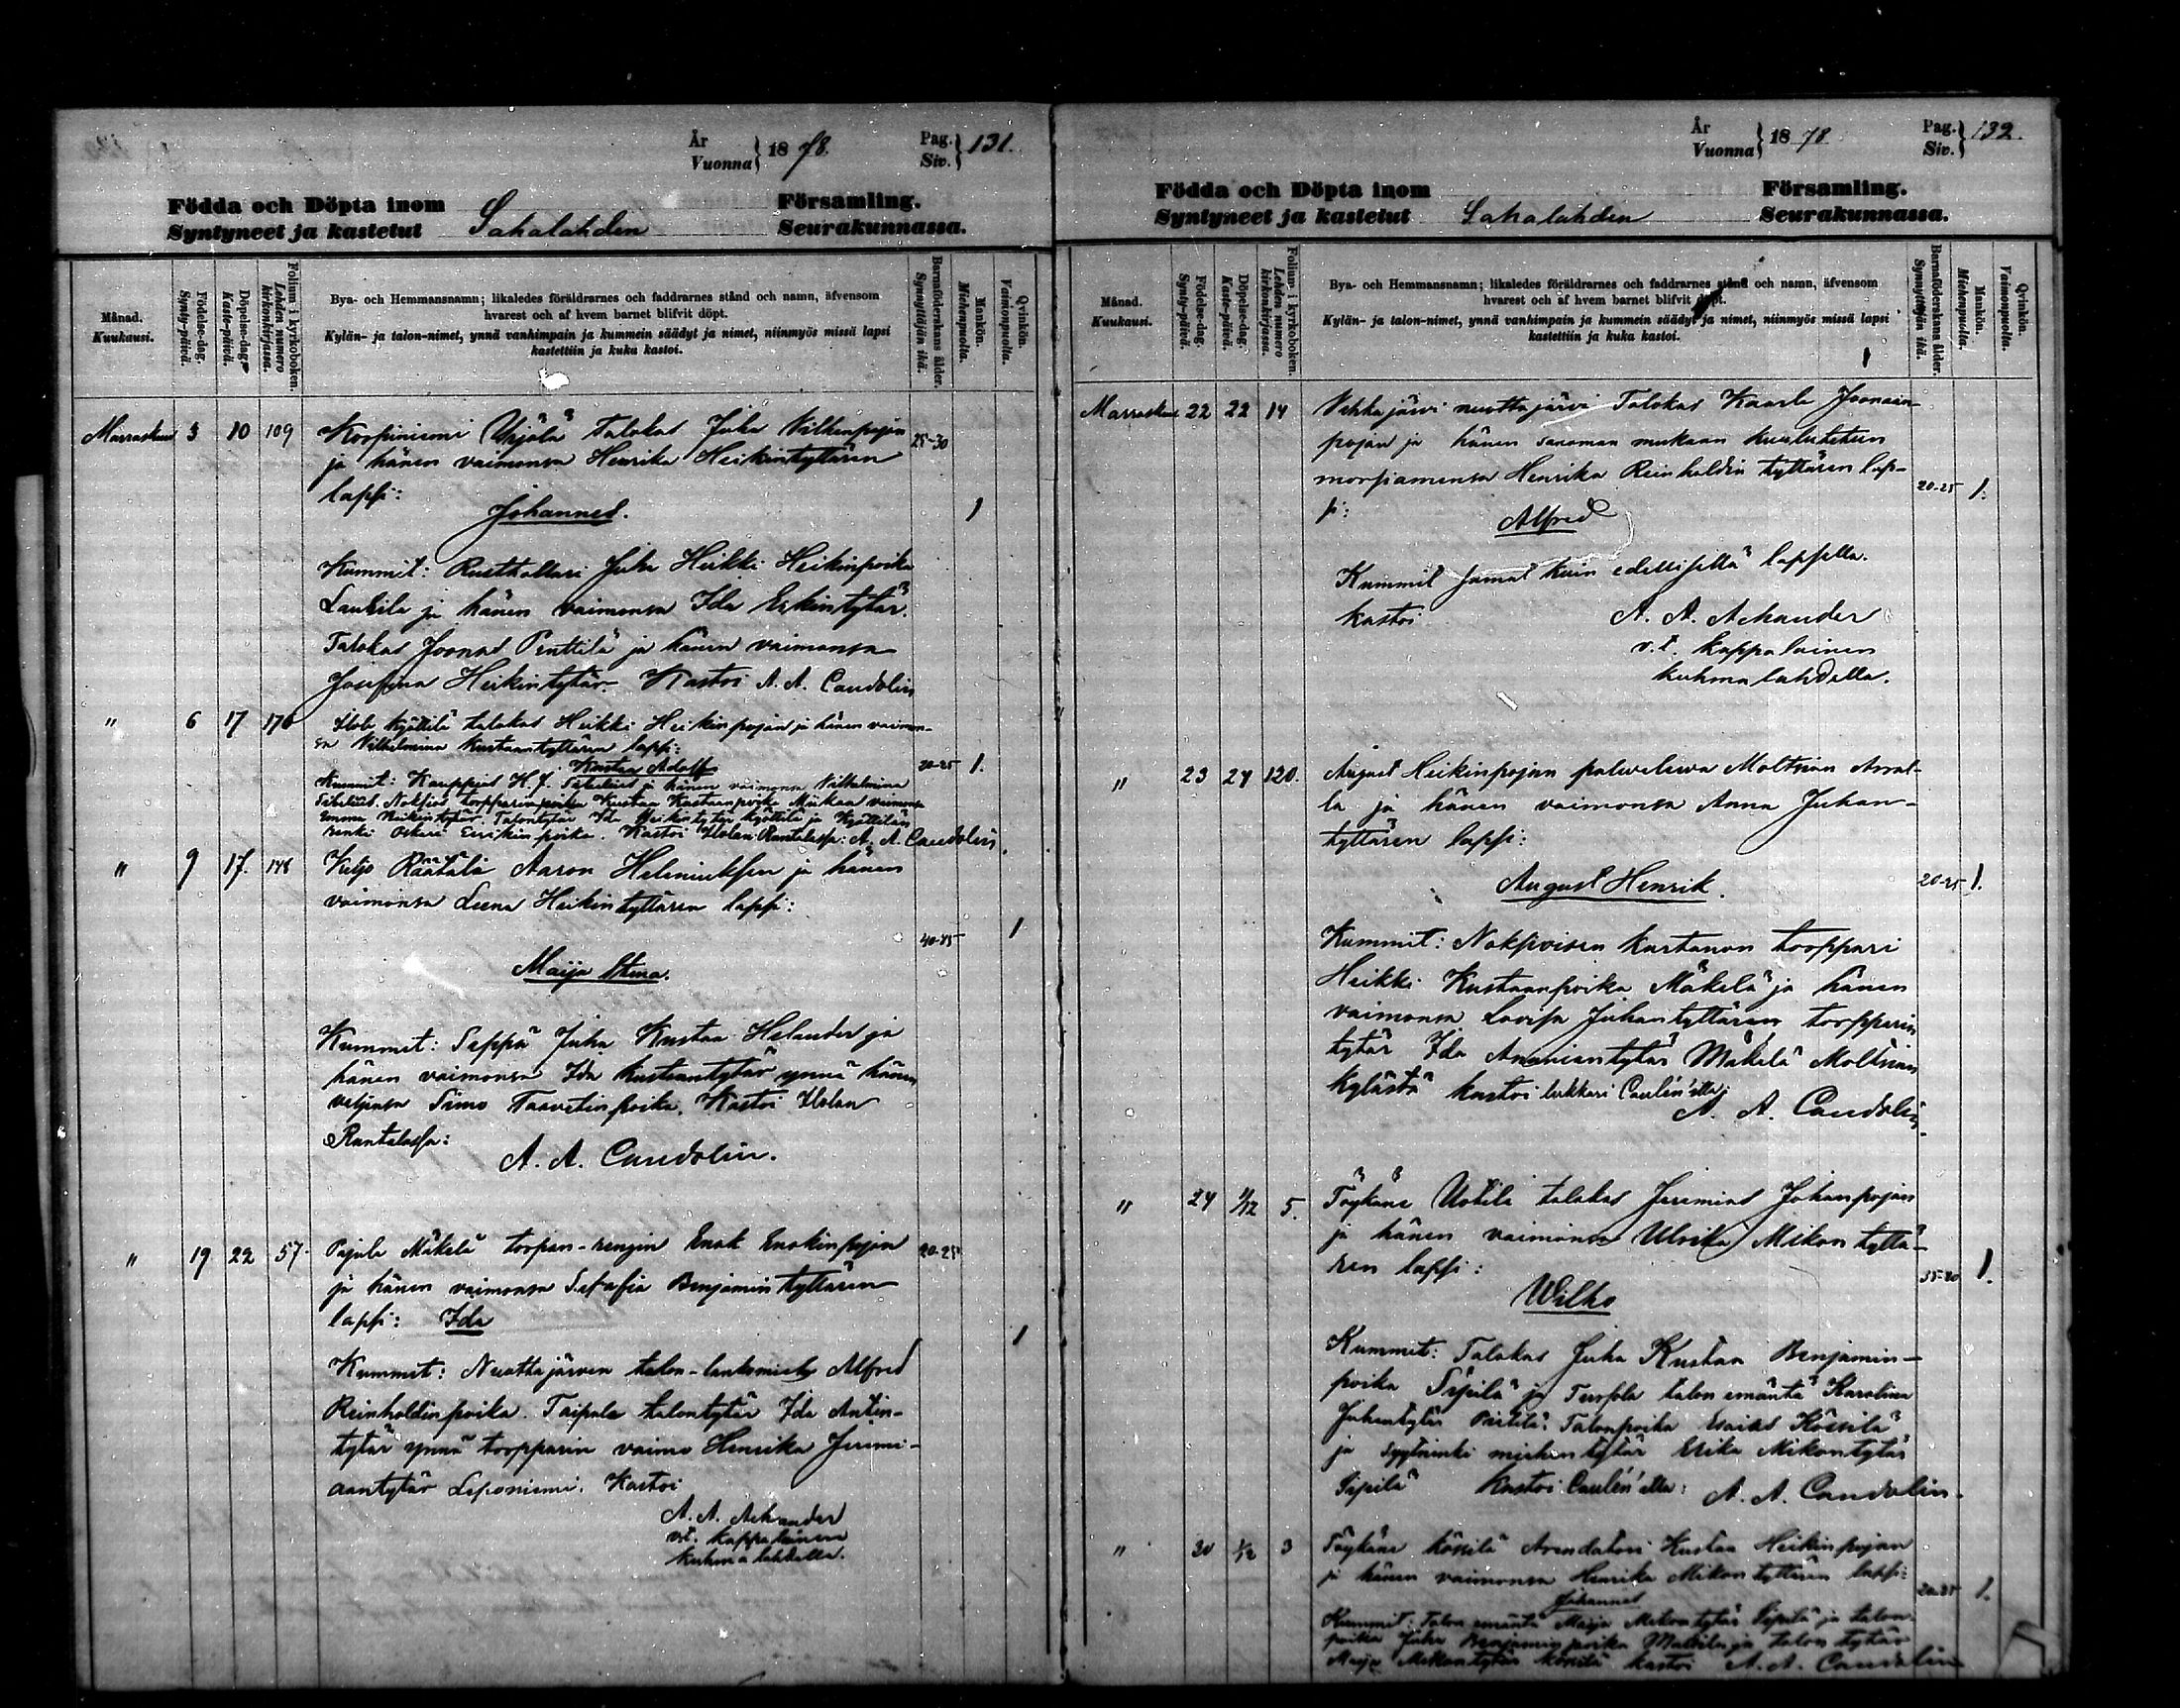 År
Vuonna } 18 78. Pag.
Siv. } 131.
Födda och Döpta inom Församling.
Syntyneet ja kastetut Sahalahden Seurakunnassa.
Månad.
Kuukausi.
Födelse-dag.
Synty-päivä.
Döpelse-dag.
Kaste-päivä.
Folium i kyrkoboken.
Lehden numero
kirkonkirjassa.
Bya- och Hemmansnamn; likaledes föräldrarnes och faddrarnes stånd och namn, äfvensom
hvarest och af hvem barnet blifvit döpt.
Kylän- ja talon-nimet, ynnä vanhimpain ja kummein säädyt ja nimet, niinmyös missä lapsi
kastettiin ja kuka kastoi.
Barnaföderskans ålder.
Synnyttäjän ikä.
Mankön.
Miehenpuolta.
Qvinkön.
Vaimonpuolta.
Marraskuu 3 10 109 Korpiniemi Yrjölä talokas Juha 25-30
ja hänen vaimonsa Henrika Heikintyttären
lapsi:
Johannes. 1
Kummit: Rusthollari Juha Heikki Heikinpoika
Laukila ja hänen vaimonsa Ida Erkintytär.
Talokas Joonas Penttilä ja hänen vaimonsa
Josefina Heikintytär. Kastoi A. A. Candolin
" 6 17 176 Kyöttilä talokas Heikki Heikinpojan ja hänen vaimon-
sa Vilhelmina Kustaantyttären lapsi:
Kustaa Adolf 20-25 1.
Kummit: Kauppias H. J. ja hänen vaimonsa Vilhelmina
torpparinpoika Kustaa Kustaanpoika vaimonsa
Emma Heikintytär. Talontytär Ida Heikintytär Kyöttilä ja Kyöttilän
renki Oskari Eerikinpoika. Kastoi Ilolan Rantalassa: A. A. Candolin.
" 9 17. 148 Keljo Räätälin Aaron Heleniuksen ja hänen
vaimonsa Leena Heikintyttären lapsi:
40-45 1
Maija Stina.
Kummit: Seppä Juha Kustaa Helander ja
hänen vaimonsa Ida Kustaantytär ynnä hänen
veljensä Simo Taavetinpoika. Kastoi Ilolan
Rantalassa:
A. A. Candolin.
" 19 22 57. Pajula Mäkelä torpan-rengin Enok Enokinpojan 20-25
ja hänen vaimonsa Serafia Benjamintyttären
lapsi: Ida
1
Kummit: Nuottajärven talon-lankomies Alfred
Reinholdinpoika. Taipale talontytär Ida Antin-
tytär ynnä torpparin vaimo Henrika Jeremi-
aantytär Leponiemi. Kastoi
A. A. Achander
v.t. kappalainen
Kuhmalahdella.
År
Vuonna } 18 78. Pag.
Siv. } 132.
Födda och Döpta inom Församling.
Syntyneet ja kastetut Sahalahden Seurakunnassa.
Månad.
Kuukausi.
Födelse-dag.
Synty-päivä.
Döpelse-dag.
Kaste-päivä.
Folium i kyrkoboken.
Lehden numero
kirkonkirjassa.
Bya- och Hemmansnamn; likaledes föräldrarnes och faddrarnes stånd och namn, äfvensom
hvarest och af hvem barnet blifvit döpt.
Kylän- ja talon-nimet, ynnä vanhimpain ja kummein säädyt ja nimet, niinmyös missä lapsi
kastettiin ja kuka kastoi.
Barnaföderskans ålder.
Synnyttäjän ikä.
Mankön.
Miehenpuolta.
Qvinkön.
Vaimonpuolta.
Marraskuu 22 22 14 Vehkajärvi nuottajärvi Talokas Kaarle Joonaan-
pojan ja hänen sanoman mukaan kuulutetun
morsiamensa Henrika Reinholdin tyttären lap- 20-25 1.
si:
Alfred
Kummit samat kuin edellisellä lapsella.
kastoi A. A. Achander
v.t. kappalainen
Kuhmalahdella.
" 23 24 120. August Heikinpojan palvelewa Moltsian Arval-
la ja hänen vaimonsa Anna Juhan-
tyttären lapsi:
August Henrik. 20-25 1.
Kummit: Noksioisen kartanon torppari
Heikki Kustaanpoika Mäkelä ja hänen
vaimonsa Lovisa Juhantyttären torpparin
tytär Ida Ananiantytär Mäkelä Moltsian
kylästä kastoi lukkari Caulén'illa
A. A. Candolin.
" 24 1/12 5. Töykänä Uotila talokas Jeremias Johanpojan
ja hänen vaimonsa Ulrika Mikontyttä-
ren lapsi: 35-40 1.
Wilho
Kummit: Talokas Juha Kustaa Benjamin-
poika Sipilä ja talon emäntä Karolina
Juhantytär Talonpoika Esaias Kössilä
ja tytär Erika Mikontytär
Sipilä Kastoi Caulén'illa: A. A. Candolin.
" 30 1/12 3 Töykänä Kössilä Arendatori Kustaa Heikinpojan
ja hänen vaimonsa Henrika Mikontyttären lapsi: 20-25 1.
Johannes
Kummit: Talon emäntä Maija Mikontytär Sipilä ja talon-
poika Juha Benjaminpoika Mattila ja talon tytär
Maija Mikontytär Kössilä kastoi A. A. Candolin